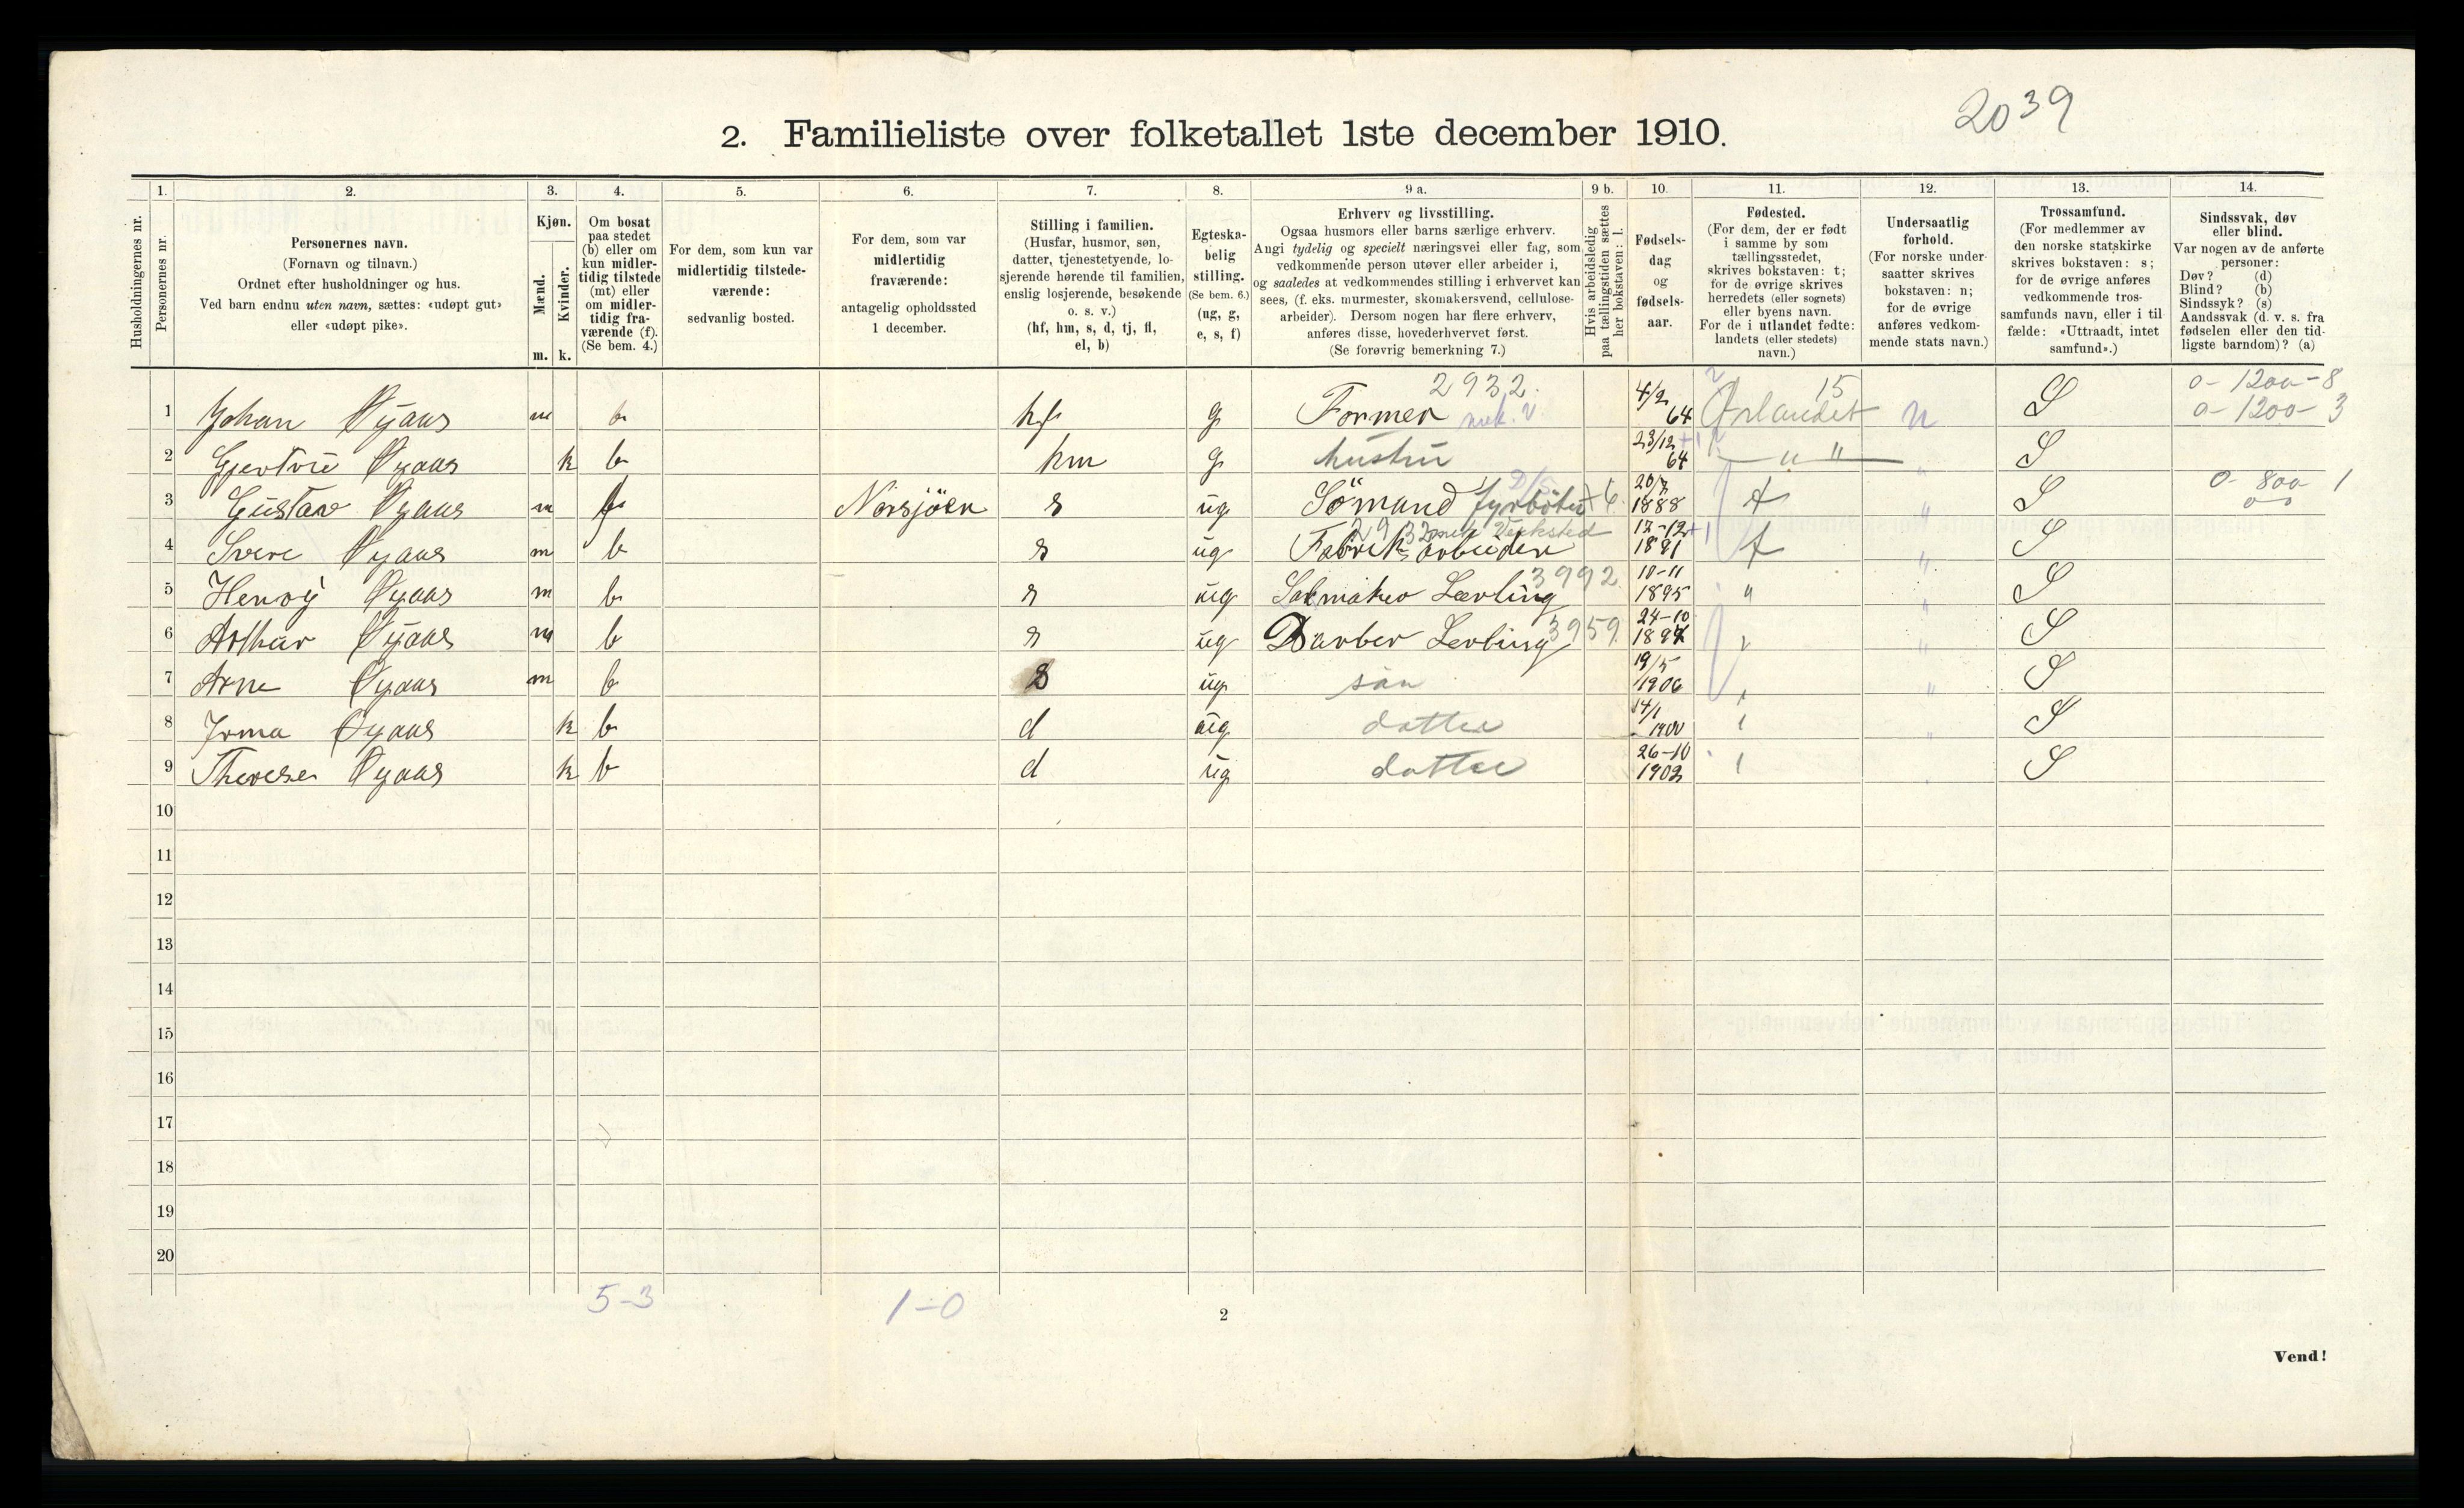 2039
2. Familieliste over folketallet 1ste december 1910.
1. 2. 3. 4. 5. 6. 7. 8. 9 a. 9 b. 10. 11. 12. 13. 14.
Husholdningernes nr.
Personernes nr.
Personernes navn.
(Fornavn og tilnavn.)
Ordnet efter husholdninger og hus.
Ved barn endnu uten navn, sættes: «udøpt gut»
eller «udøpt pike».
Kjøn.
Mænd.
Kvinder.
m. k.
Om bosat
paa stedet
(b) eller om
kun midler-
tidig tilstede
(mt) eller
om midler-
tidig fra-
værende (f).
(Se bem. 4.)
For dem, som kun var
midlertidig tilstede-
værende:
sedvanlig bosted.
For dem, som var
midlertidig
fraværende:
antagelig opholdssted
1 december.
Stilling i familien.
(Husfar, husmor, søn,
datter, tjenestetyende, lo-
sjerende hørende til familien,
enslig losjerende, besøkende
o. s. v.)
(hf, hm, s, d, tj, fl,
el, b)
Egteska-
belig
stilling.
(Se bem. 6.)
(ug, g,
e, s, f)
Erhverv og livsstilling.
Ogsaa husmors eller barns særlige erhverv.
Angi tydelig og specielt næringsvei eller fag, som
vedkommende person utøver eller arbeider i,
og saaledes at vedkommendes stilling i erhvervet kan
sees, (f. eks. murmester, skomakersvend, cellulose-
arbeider). Dersom nogen har flere erhverv,
anføres disse, hovederhvervet først.
(Se forøvrig bemerkning 7.)
Hvis arbeidsledig
paa tællingstiden sættes
her bokstaven: l.
Fødsels-
dag
og
fødsels-
aar.
Fødested.
(For dem, der er født
i samme by som
tællingsstedet,
skrives bokstaven: t;
for de øvrige skrives
herredets (eller sognets)
eller byens navn.
For de i utlandet fødte:
landets (eller stedets)
navn.)
Undersaatlig
forhold.
(For norske under-
saatter skrives
bokstaven: n;
for de øvrige
anføres vedkom-
mende stats navn.)
Trossamfund.
(For medlemmer av
den norske statskirke
skrives bokstaven: s;
for de øvrige anføres
vedkommende tros-
samfunds navn, eller i til-
fælde: «Uttraadt, intet
samfund».)
Sindssvak, døv
eller blind.
Var nogen av de anførte
personer:
Døv? (d)
Blind? (b)
Sindssyk? (s)
Aandssvak (d. v. s. fra
fødselen eller den tid-
ligste barndom)? (a)
2932. 15 0-1200-8
1 Johan Øyaas m b hf g Former mek. V. 4/2 64 Ørlandet n S 0-1200-3
2 Gjertrü Øyaas k b hm g hustru 23/12 64 — " " — " S
3 Güstav Øyaas m f Norsjöen s ug Sömand fyrböter 20/7 1888 t " S 0-800 1
2932 mek Verksted
4 Svere Øyaas m b s ug Fabrik arbeider 17-12 1891 t " S
5 Henry Øyaas m b s ug Salmaker Lærling 3992. 10-11 1895 " " S
6 Arthur Øyaas m b s ug Barber Lerling 3959. 24-10 1897 " " S
7 Arne Øyaas m b s ug sön 19/5 1906 " " S
8 Irma Øyaas k b d ug datter 14/1 1900 " " S
9 Therese Øyaas k b d ug datter 26-10 1902 " S
10
11
12
13
14
15
16
17
18
19
20
5-3 1-0
2
Vend!